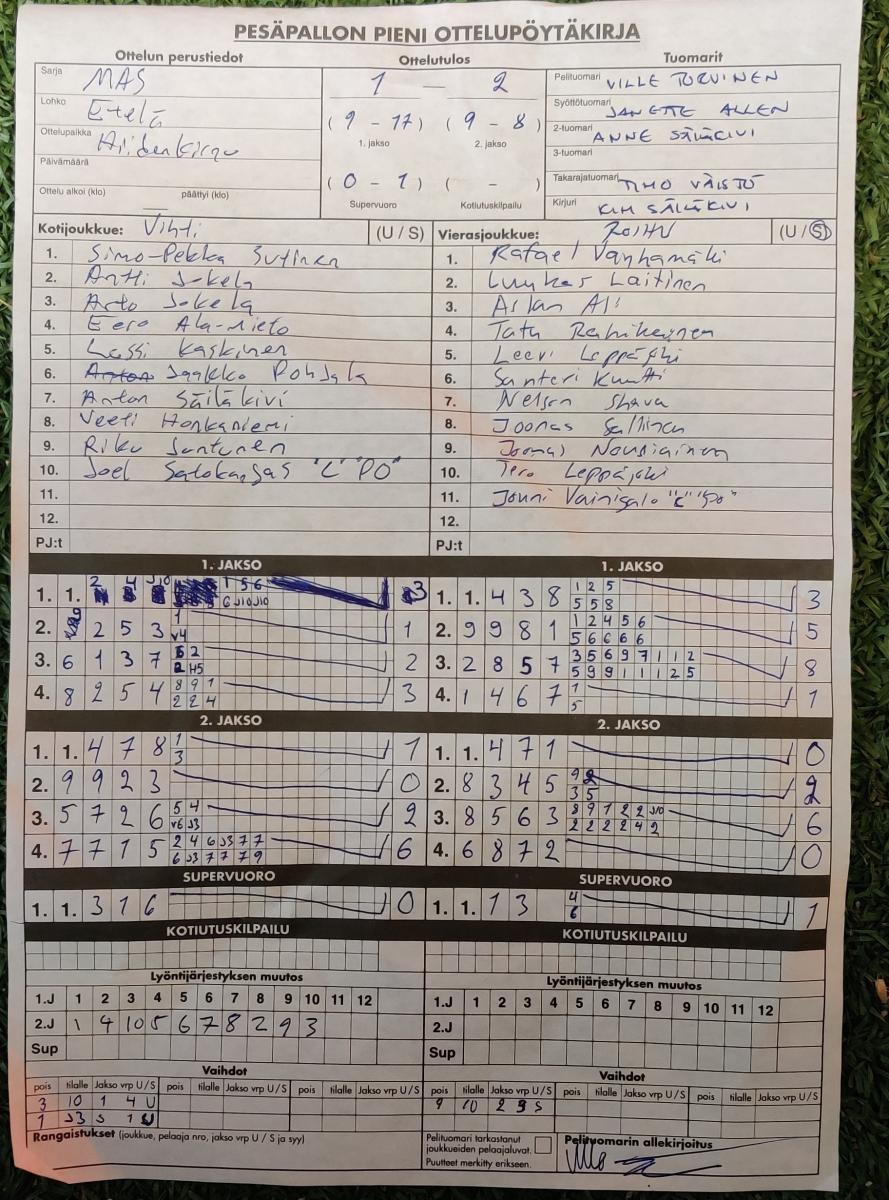 PESÄPALLON PIENI OTTELUPÖYTÄKIRJA
Ottelun perustiedot Ottelutulos Tuomarit
Sarja MAS
Lohko Etelä
Ottelupaikka
Päivämäärä
Ottelu alkoi (klo) päättyi (klo)
1 — 2
( 9 - 17 ) ( 9 - 8 )
1. jakso 2. jakso
( 0 - 1 ) ( - )
Supervuoro Kotiutuskilpailu
Pelituomari VILLE TURVINEN
Syöttötuomari JANETTE ALLEN
2-tuomari ANNE SÄILÄKIVI
3-tuomari
Takarajatuomari TIMO VÄISTÖ
Kirjuri KIM SÄILÄKIVI
Kotijoukkue: Vihti (U / S)
1. Simo-Pekka Sutinen
2. Antti Jokela
3. Arto Jokela
4. Eero Ala-Mieto
5. Lassi Kaskinen
6. Jaakko Pohjala
7. Anton Säiläkivi
8. Veeti Honkaniemi
9. Riku Santunen
10. Joel Salokangas "C" "PO"
11.
12.
PJ:t
Vierasjoukkue: ROIHU (U / S)
1. Rafael Vanhamäki
2. Luukas Laitinen
3. Aslan Ali
4. Tatu Rahikainen
5. Leevi Leppäjoki
6. Santeri Kuutti
7. Nelson Shava
8. Joonas Sallinen
9. Joonas Nousiainen
10. Tero Leppäjoki
11. Jouni Vainigalo "C" "PO"
12.
PJ:t
1. JAKSO
1. 1. 2 4 J10 1 5 6 3
6 J10 J10
2. 2 5 3 1 1
V4
3. 6 1 3 7 2 2
H5
4. 8 2 5 4 8 9 1 3
2 2 4
2. JAKSO
1. 1. 4 7 8 1 1
3
2. 9 9 2 3 0
3. 5 7 2 6 5 4 2
V6 J3
4. 7 7 1 5 2 4 6 J3 7 7 6
6 J3 7 7 7 9
SUPERVUORO
1. 1. 3 1 6 0
KOTIUTUSKILPAILU
1. JAKSO
1. 1. 4 3 8 1 2 5 3
5 5 8
2. 9 9 8 1 1 2 4 5 6 5
5 6 6 6 6
3. 2 8 5 7 3 5 6 9 7 1 1 2 8
5 9 9 1 1 1 2 5
4. 1 4 6 7 1 1
5
2. JAKSO
1. 1. 4 7 1 0
2. 8 3 4 5 9 2 2
3 5
3. 8 5 6 3 8 9 1 2 2 J10 6
2 2 2 2 4 2
4. 6 8 7 2 0
SUPERVUORO
1. 1. 1 3 4 1
6
KOTIUTUSKILPAILU
Lyöntijärjestyksen muutos
1.J 1 2 3 4 5 6 7 8 9 10 11 12
2.J 1 4 10 5 6 7 8 2 9 3
Sup
Lyöntijärjestyksen muutos
1.J 1 2 3 4 5 6 7 8 9 10 11 12
2.J
Sup
Vaihdot
pois tilalle Jakso vrp U / S pois tilalle Jakso vrp U / S pois tilalle Jakso vrp U / S
3 10 1 4 U
1 J3 S 1 U
Vaihdot
pois tilalle Jakso vrp U / S pois tilalle Jakso vrp U / S pois tilalle Jakso vrp U / S
9 10 2 3 S
Rangaistukset (joukkue, pelaaja nro, jakso vrp U / S ja syy)
Pelituomari tarkastanut
joukkueiden pelaajaluvat.
Puutteet merkitty erikseen.
Pelituomarin allekirjoitus